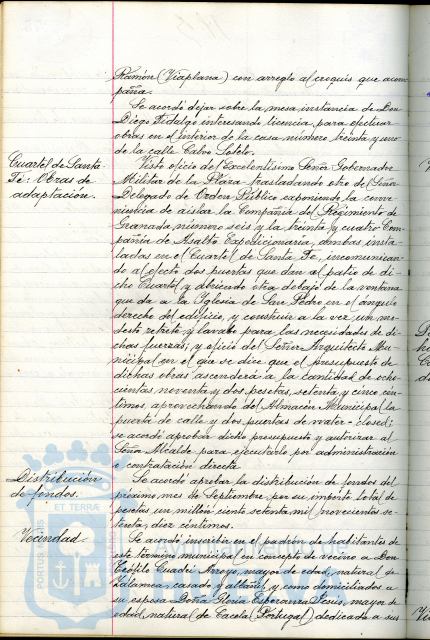 Ramón (Viaplana) con arreglo al croquis que acom-
paña.
Se acordó dejar sobre la mesa, instancia de Don
Diego Fidalgo interesando licencia, para efectuar
obras en el interior de la casa número treinta y uno
de la calle Calvo Sotelo.
Cuartel de Santa
Fé: Obras de
adaptación.
Visto oficio del Excelentísimo Señor Gobernador
Militar de la Plaza trasladando otro del Señor
Delegado de Orden Público exponiendo la conve-
niencia de aislar la Compañía del Regimiento de
Granada número seis y la treinta y cuatro Com-
pañia de Asalto Expedicionaria, ambas insta-
ladas en el Cuartel de Santa Fé, incomunican-
do al efecto dos puertas que dan al patio de di-
cho Cuartel y abriendo otra debajo de la ventana
que da a la Iglesia de San Pedro en el ángulo
derecho del edificio, y construir a la vez un mo-
desto retrete y lavabo para las necesidades de di-
chas fuerzas; y oficio del Señor Arquitecto Mu-
nicipal en el que se dice que el presupuesto de
dichas obras ascenderá a la cantidad de ocho-
cientas noventa y dos pesetas, setenta y cinco cén-
timos aprovechando del Almacen Municipal la
puerta de calle y dos puertas de water-closed;
se acordó aprobar dicho presupuesto y autorizar al
Señor Alcalde para ejecutarlo por administración
o contratación directa.
Distribución
de fondos.
Se acordó aprobar la distribución de fondos del
próximo mes de Septiembre, por su importe total de
pesetas un millón ciento setenta mil novecientas se-
tenta, diez céntimos.
Vecindad.
Se acordó inscribir en el padrón de habitantes de
este término municipal en concepto de vecino a Don
Teófilo Arroyo, mayor de edad, natural de
Zalamea, casado y albañil y como domiciliados a
su esposa Doña Gloria Esperanza Jesús, mayor de
edad, natural de Cacela (Portugal) dedicada a sus
PORTUS MARIS
ET TERRA